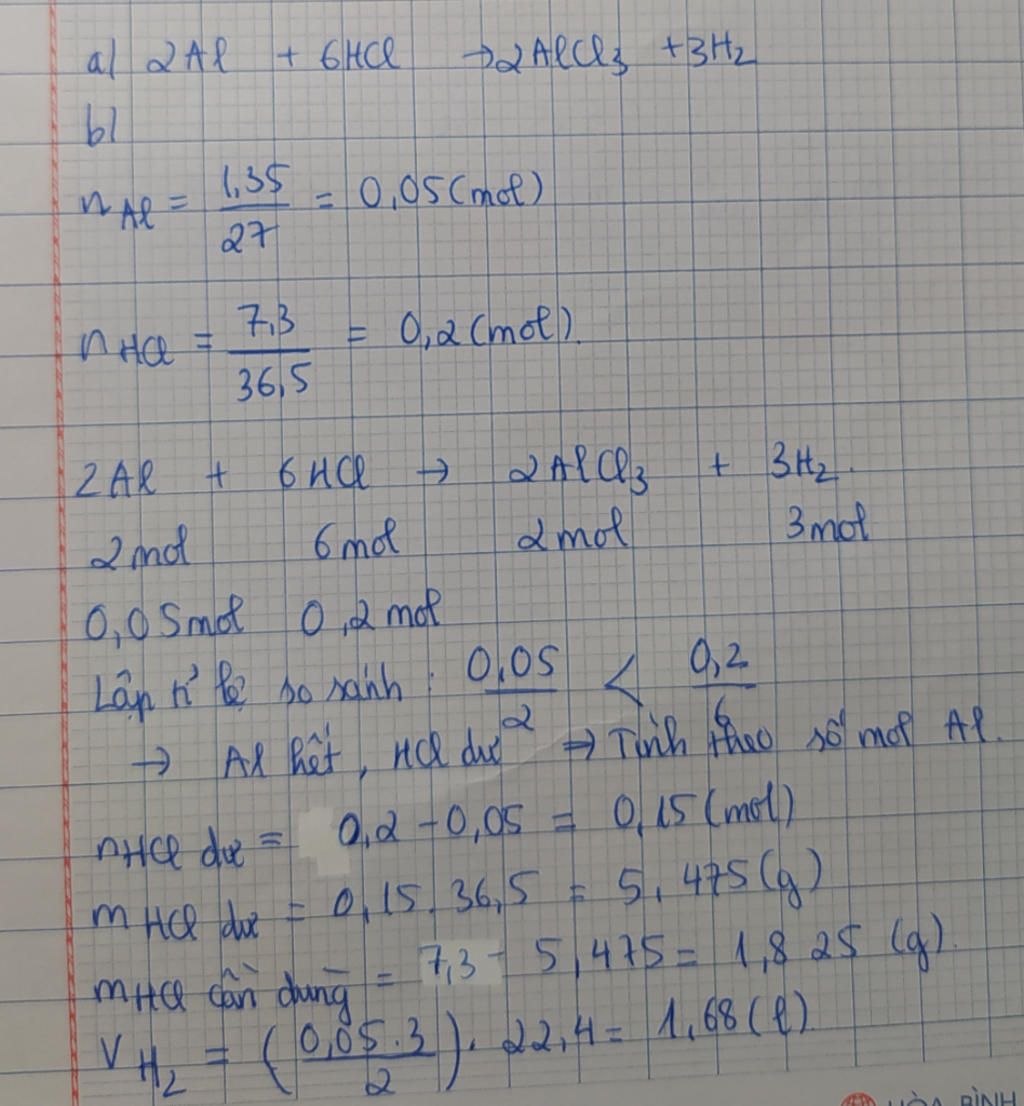 a) 2Al + 6HCl → 2AlCl3 + 3H2
b)
nAl = 1,35/27 = 0,05 (mol)
nHCl = 7,3/36,5 = 0,2 (mol).
2Al + 6HCl → 2AlCl3 + 3H2.
2mol 6mol 2mol 3mol
0,05mol 0,2 mol
Lập tỉ lệ so sánh : 0,05/2 < 0,2/6
→ Al hết, HCl dư ⇒ Tính theo số mol Al.
nHCl dư = 0,2 - 0,05 = 0,15 (mol)
mHCl dư = 0,15.36,5 = 5,475 (g)
mHCl cần dùng = 7,3 - 5,475 = 1,825 (g).
VH2 = (0,05.3/2). 22,4 = 1,68 (l)
HÒA BÌNH